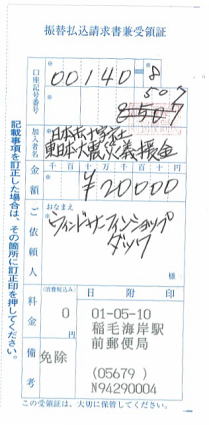 振替払込請求書兼受領証
口座記号番号
00140 8
507
8507
加入者名
日本赤十字社
東日本大震災義援金
金額
千 百 十 万 千 百 十 円
¥20000
ご依頼人
おなまえ
ウィンドサーフィンショップ
ダッワ
様
料金
(消費税込み)
0
円
日附印
01-05-10
稲毛海岸駅
前郵便局
(05679)
N94290004
備考
免除
この受領証は、大切に保管してください。
記載事項を訂正した場合は、その箇所に訂正印を押してください。